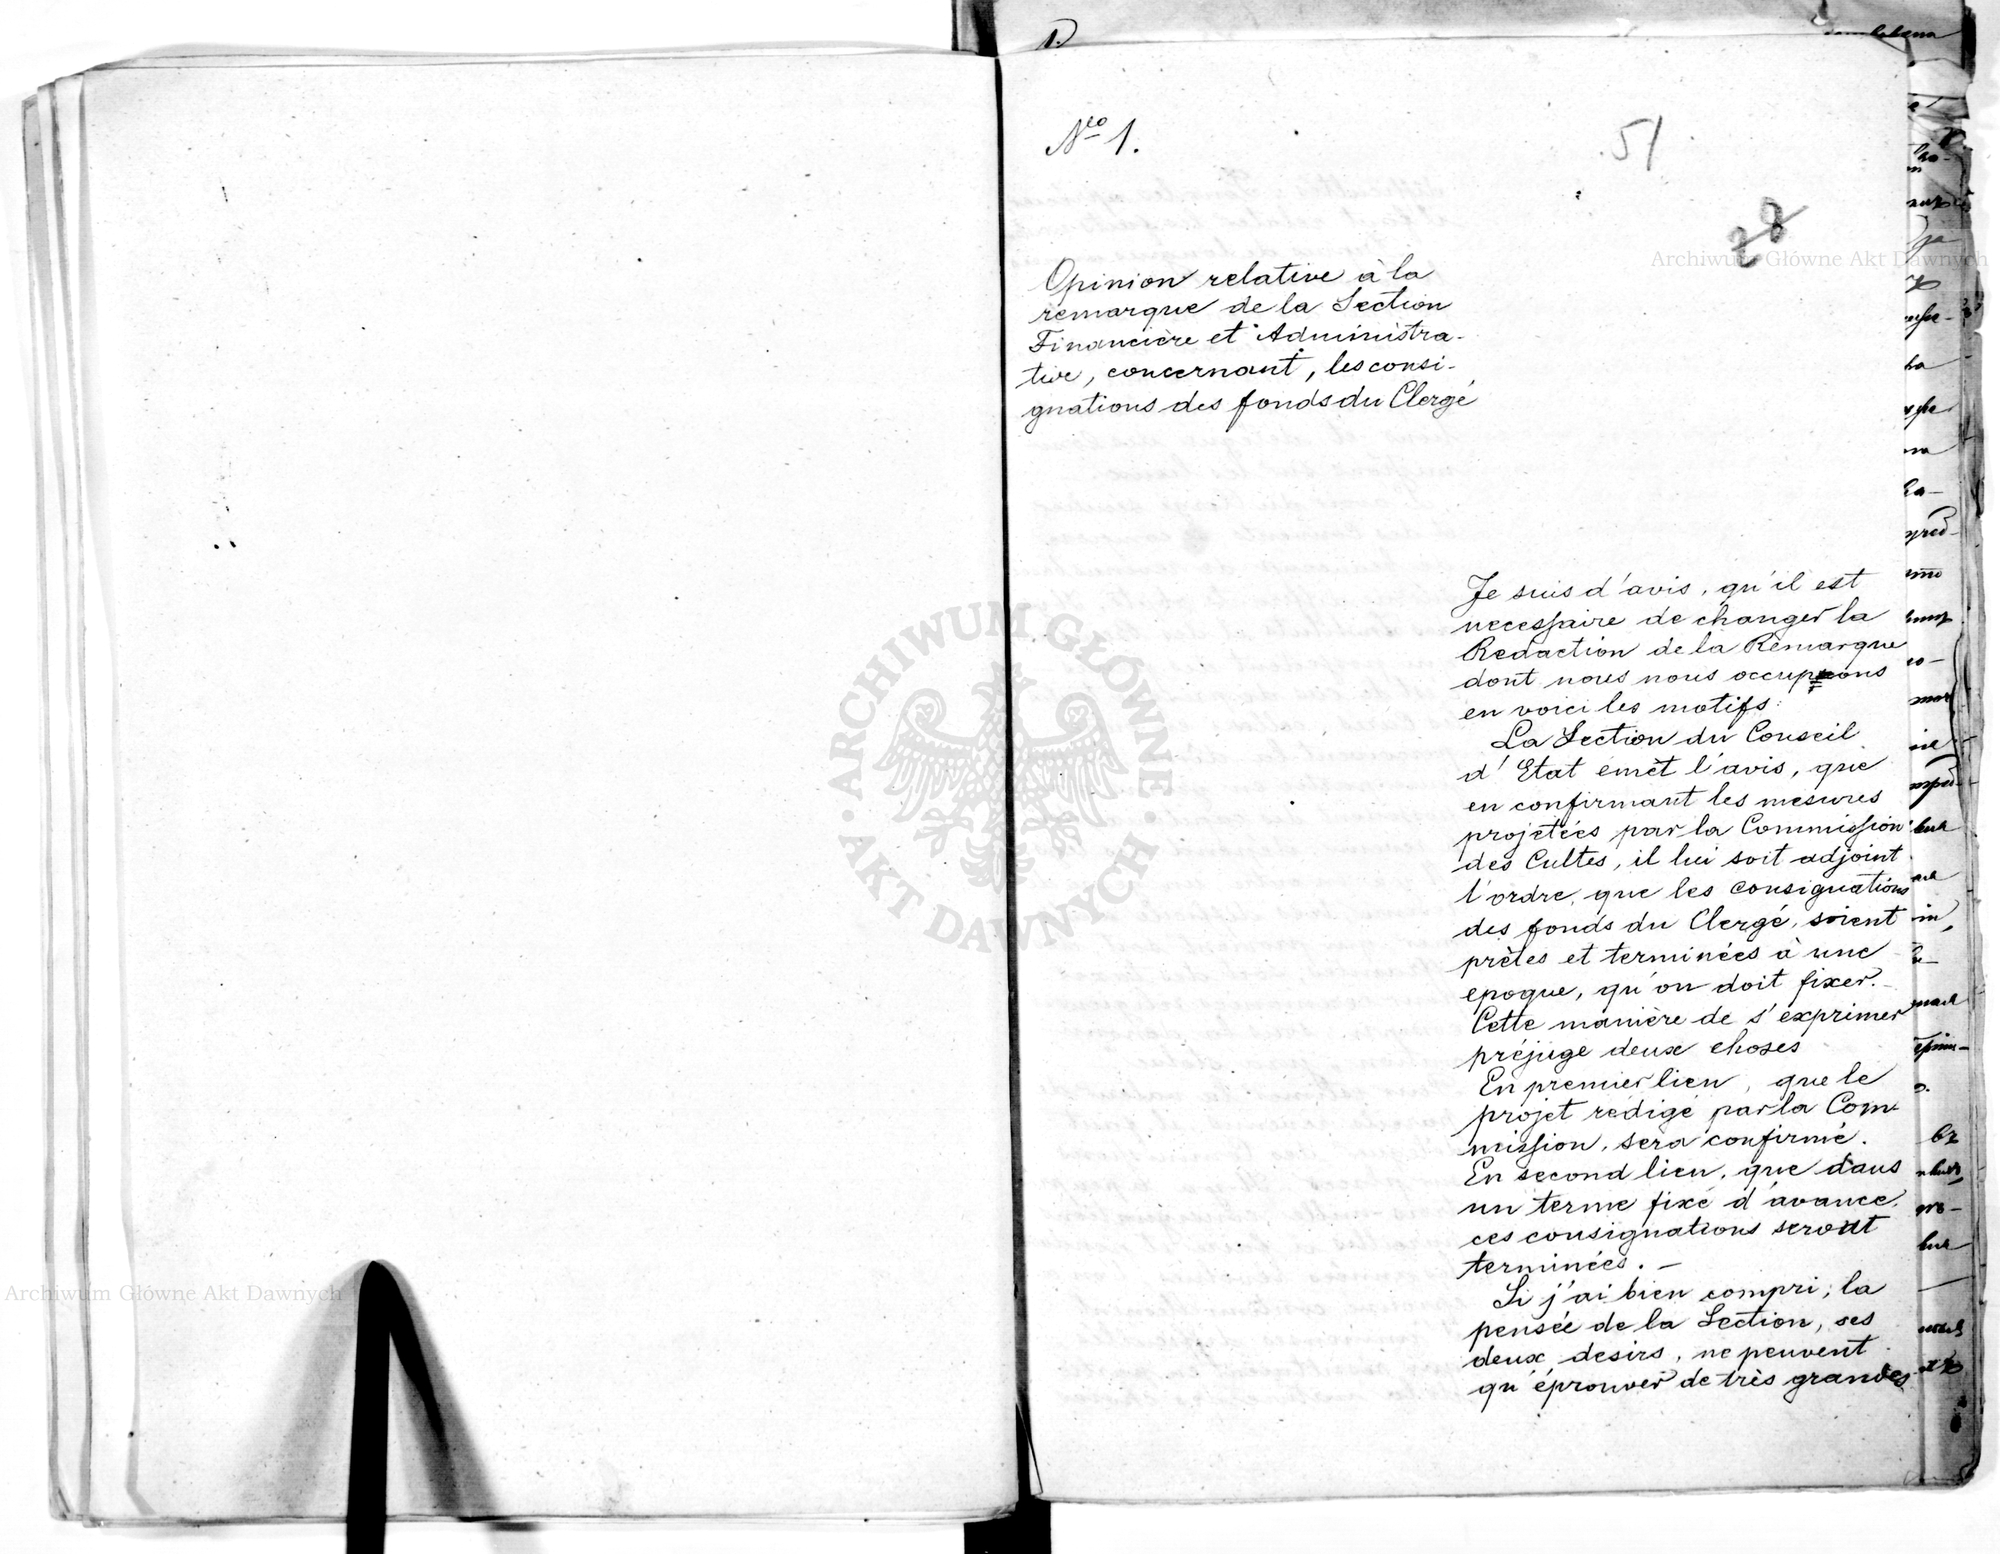 Nro 1.
51
28
Opinion relative à la
remarque de la Section
Financière et Administra-
tive, concernant, les consi-
gnations des fonds du Clergé
Je suis d'avis, qu'il est
necessaire de changer la
Redaction de la Remarque
dont nous nous occupons
en voici les motifs:
La Section du Conseil
d'Etat émèt l'avis, que
en confirmant les mesures
projetées par la Commission
des Cultes, il lui soit adjoint
l'ordre, que les consignations
des fonds du Clergé, soient
prètes et terminées à une
epoque, qu'on doit fixer.-
Cette manière de s'exprimer
préjuge deux choses
En premier lieu, que le
projet rédigé par la Com-
mission, sera confirmé.
En second lieu, que dans
un terme fixé d'avance,
ces consignations seront
terminées. -
Si j'ai bien compri; la
pensée de la Section, ses
deux desirs, ne peuvent
qu'éprouver de très grandes
ARCHIWUM GŁÓWNE AKT DAWNYCH
Archiwum Główne Akt Dawnych
Archiwum Główne Akt Dawnych